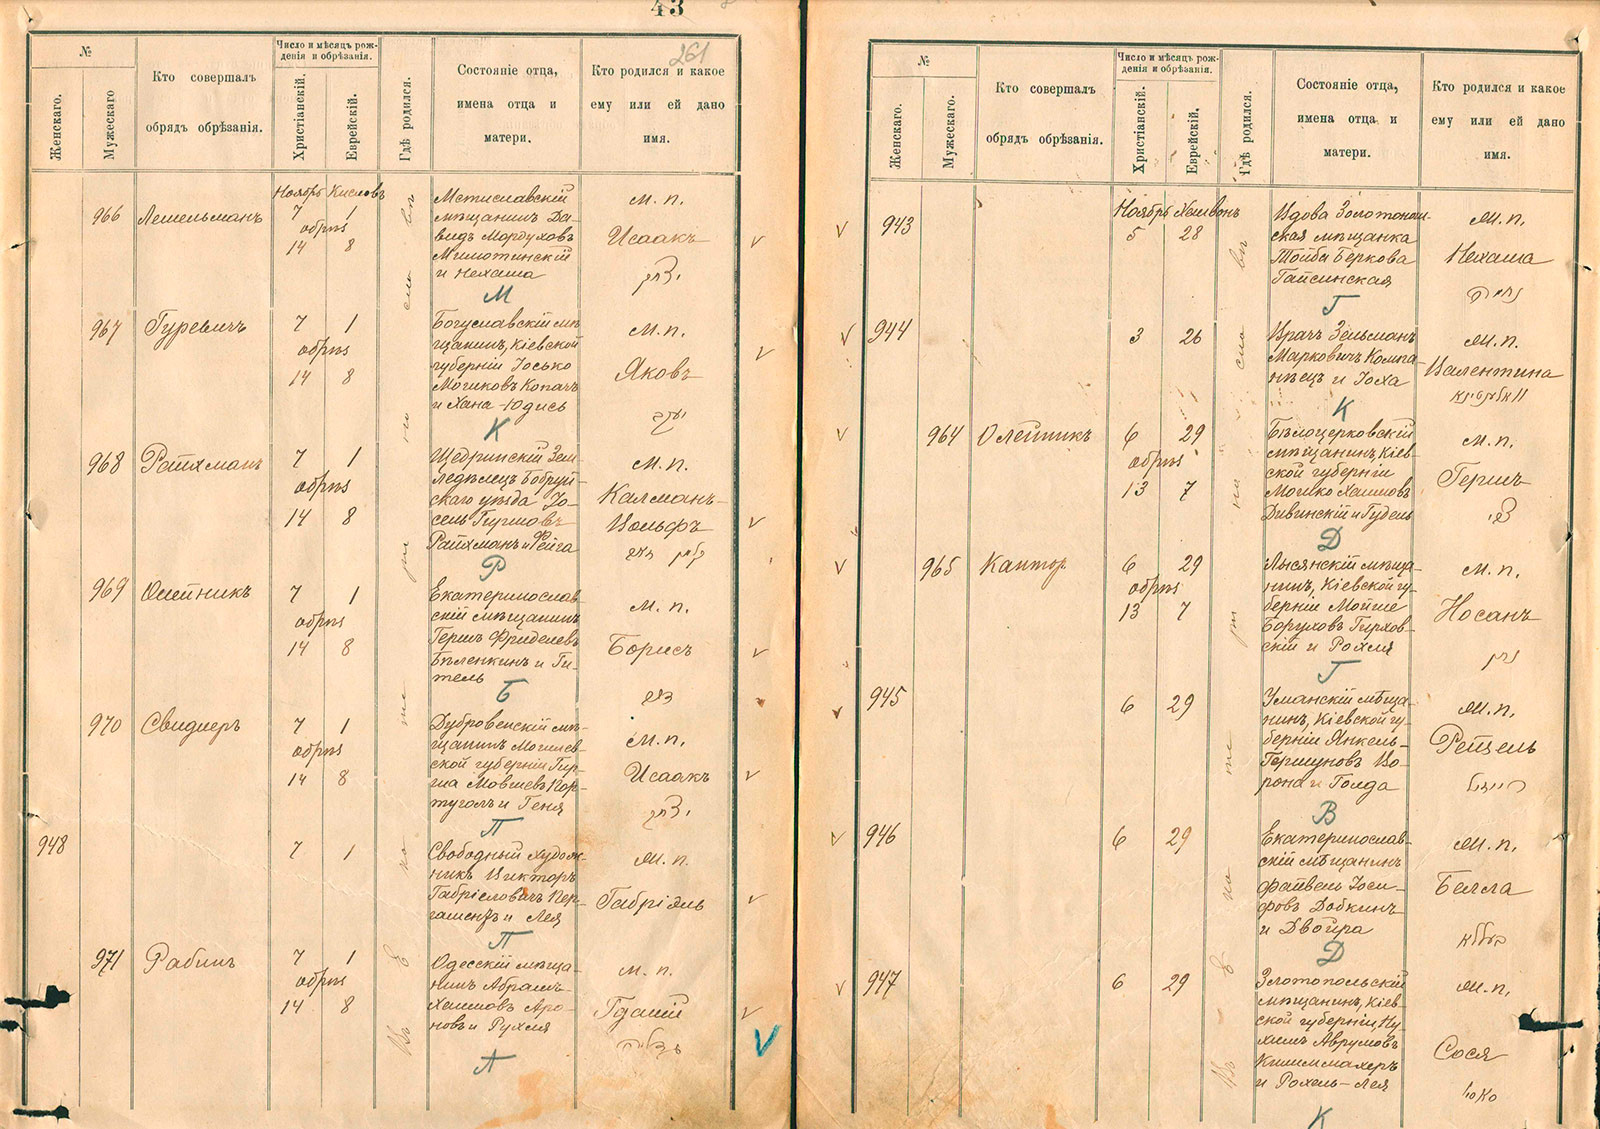 43
261
№
Женскаго.
Мужескаго
Кто совершалъ
обрядъ обрѣзанія.
Число и мѣсяцъ рож-
денія и обрѣзанія.
Христіанскій.
Еврейскій.
Гдѣ родился.
Состояніе отца,
имена отца и
матери.
Кто родился и какое
ему или ей дано
имя.
Ноябрь Кисловъ
966
7 1
обрѣз
14 8
Мстиславскій
мѣщанинъ Да-
видъ Мордуховъ
и Нехама
М
м. п.
Исаакъ
יצחק
967
Гуревичъ
7 1
обрѣз
14 8
Богуславскій мѣ-
щанинъ, Кіевской
губерніи Іосько
Мошковъ Копачъ
и Хана-Юдись
К
м. п.
Яковъ
יעקב
968
Райхманъ
7 1
обрѣз
14 8
Щедринскій Зем-
ледѣлецъ Бобруй-
скаго уѣзда Іо-
сель Гиршовъ
Райхманъ и Фейга
Р
м. п.
Калманъ-
Вольфъ
969
Олейникъ
7 1
обрѣз
14 8
Екатеринослав-
скій мѣщанинъ
Гершъ Фриделевъ
Бѣленкинъ и Ги-
тель
Б
м. п.
Борисъ
970
Свидлеръ
7 1
обрѣз
14 8
Дубровенскій мѣ-
щанинъ Могилев-
ской губерніи Гир-
ша Мовшевъ Пор-
тугалъ и Геня
П
м. п.
Исаакъ
יצחק
948
7 1
Свободный худож-
никъ Викторъ
Габріеловичъ Пер-
гаментъ и Лея
П
ж. п.
Габріэль
971
Рабинъ
7 1
обрѣз
14 8
Одесскій мѣща-
нинъ Абрамъ-
Хаимовъ Аро-
новъ и Рухля
А
м. п.
גדליה
№
Женскаго.
Мужескаго.
Кто совершалъ
обрядъ обрѣзанія.
Число и мѣсяцъ рож-
денія и обрѣзанія.
Христіанскій.
Еврейскій.
Гдѣ родился.
Состояніе отца,
имена отца и
матери.
Кто родился и какое
ему или ей дано
имя.
Ноябрь Хешвонъ
943
5 28
Вдова Золотонош-
ская мѣщанка
Тойба Беркова
Гайсинская
Г
ж. п.
Нехама
נחמה
944
3 26
Врачъ Зельманъ
Марковичъ Компа-
нѣецъ и Іоха
К
ж. п.
Валентина
964
Олейникъ
6 29
обрѣз
13 7
Бѣлоцерковскій
мѣщанинъ, Кіев-
ской губерніи
Мошко Хаимовъ
Дивинскій и Гудель
Д
м. п.
Гершъ
965
Кантор
6 29
обрѣз
13 7
Лысянскій мѣща-
нинъ, Кіевской гу-
берніи Мойше
Боруховъ Гирхов-
скій и Рохля
Г
м. п.
Носанъ
נתן
945
6 29
Уманскій мѣща-
нинъ, Кіевской гу-
берніи Янкель-
Гершуновъ Во-
рона и Голда
В
ж. п.
Рейзель
רייזל
946
6 29
Екатеринослав-
скій мѣщанинъ
Файвель Іоси-
фовъ Добкинъ
и Двойра
Д
ж. п.
Белла
בעללא
947
6 29
Златопольскій
мѣщанинъ, Кіев-
ской губерніи, Ну-
химъ Аврумовъ
и Рохель-Лея
К
ж. п.
Сося